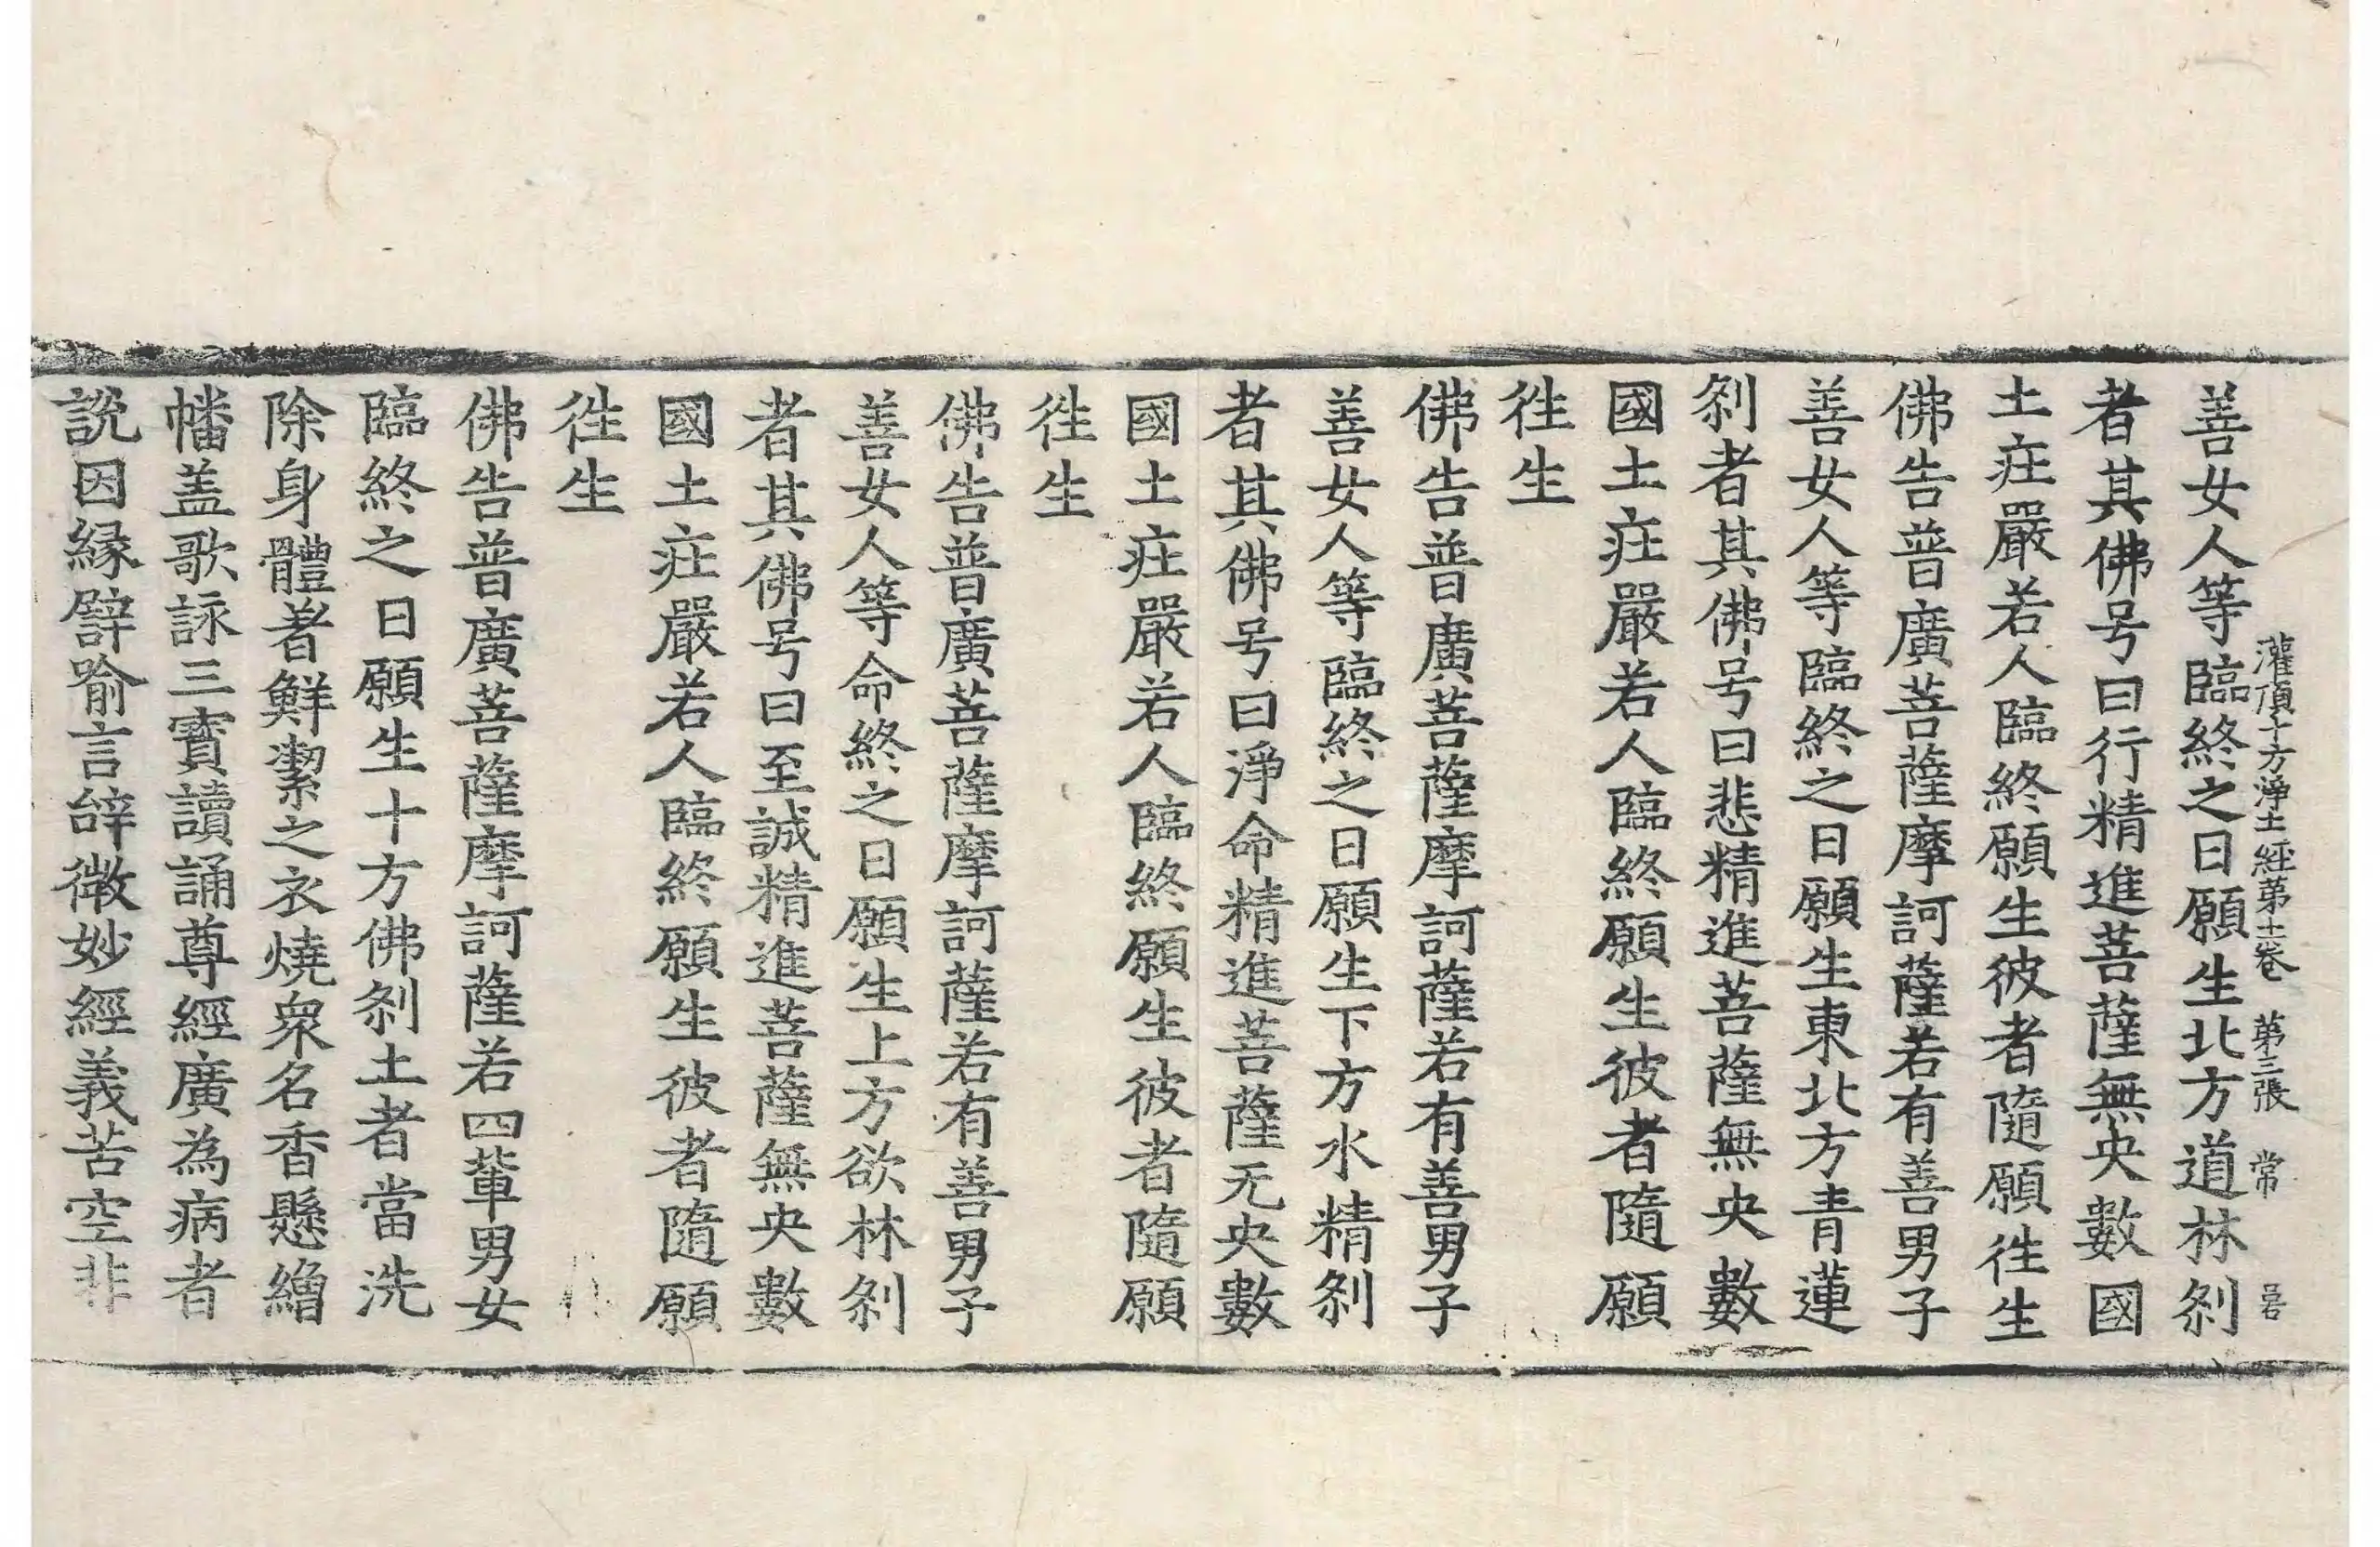 灌頂十方淨土經第十一卷 第三張 常
善女人等臨終之日願生北方道林刹
者其佛号曰行精進菩薩無央數國
土疘嚴若人臨終願生彼者隨願徃生
佛告普廣菩薩摩訶薩若有善男子
善女人等臨終之日願生東北方青蓮
刹者其佛号曰悲精進菩薩無央數
國土疘嚴若人臨終願生彼者隨願
徃生
佛告普廣菩薩摩訶薩若有善男子
善女人等臨終之日願生下方水精刹
者其佛号曰淨命精進菩薩无央數
國土疘嚴若人臨終願生彼者隨願
徃生
佛告普廣菩薩摩訶薩若有善男子
善女人等命終之日願生上方欲林刹
者其佛号曰至誠精進菩薩無央數
國土疘嚴若人臨終願生彼者隨願
徃生
佛告普廣菩薩摩訶薩若四輩男女
臨終之日願生十方佛刹土者當洗
除身體著鮮潔之衣燒衆名香懸繒
幡盖歌詠三寶讀誦尊經廣為病者
說因縁譬喻言辝微妙經義苦空非